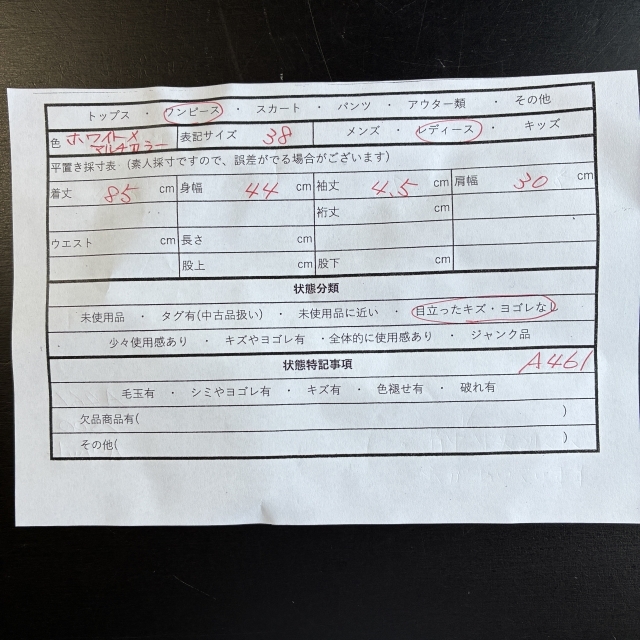 トップス ・ ワンピース ・ スカート ・ パンツ ・ アウター類 ・ その他
色 ホワイト×マルチカラー 表記サイズ 38 メンズ ・ レディース ・ キッズ
平置き採寸表（素人採寸ですので、誤差がでる場合がございます）
着丈 85 cm 身幅 44 cm 袖丈 4.5 cm 肩幅 30 cm
裄丈 cm
ウエスト cm 長さ cm
股上 cm 股下 cm
状態分類
未使用品 ・ タグ有(中古品扱い) ・ 未使用品に近い ・ 目立ったキズ・ヨゴレなし
少々使用感あり ・ キズやヨゴレ有 ・全体的に使用感あり ・ ジャンク品
状態特記事項 A461
毛玉有 ・ シミやヨゴレ有 ・ キズ有 ・ 色褪せ有 ・ 破れ有
欠品商品有( )
その他( )